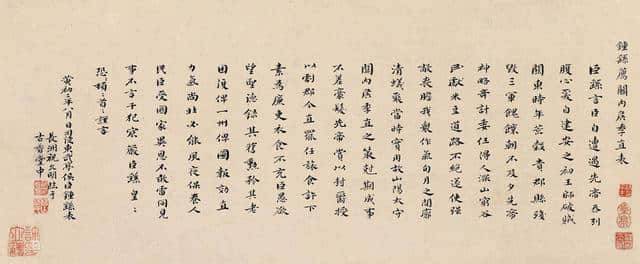 鍾繇薦關內侯季直表
臣繇言臣自遭遇先帝忝列
腹心爰自建安之初王師破賊
關東時年荒穀貴郡縣殘
毀三軍餽饟朝不及夕先帝
神略奇計委任得人深山窮谷
民獻米豆道路不絕遂使強
敵喪膽我衆作氣旬月之間廓
清蟻聚當時實用故山陽太守
關內侯季直之策剋期成事
不差豪髮先帝賞以封爵授
以劇郡今直罷任旅食許下
素為廉吏衣食不充臣愚欲
望聖德錄其舊勳矜其老
困復俾一州俾圖報効直
力氣尚壯必能夙夜保養人
民臣受國家異恩不敢雷同見
事不言干犯宸嚴臣繇皇〻
恐〻頓〻首〻謹言
黃初二年八月日司徒東武亭侯臣鍾繇表
長洲祝允明臨于
古香堂中